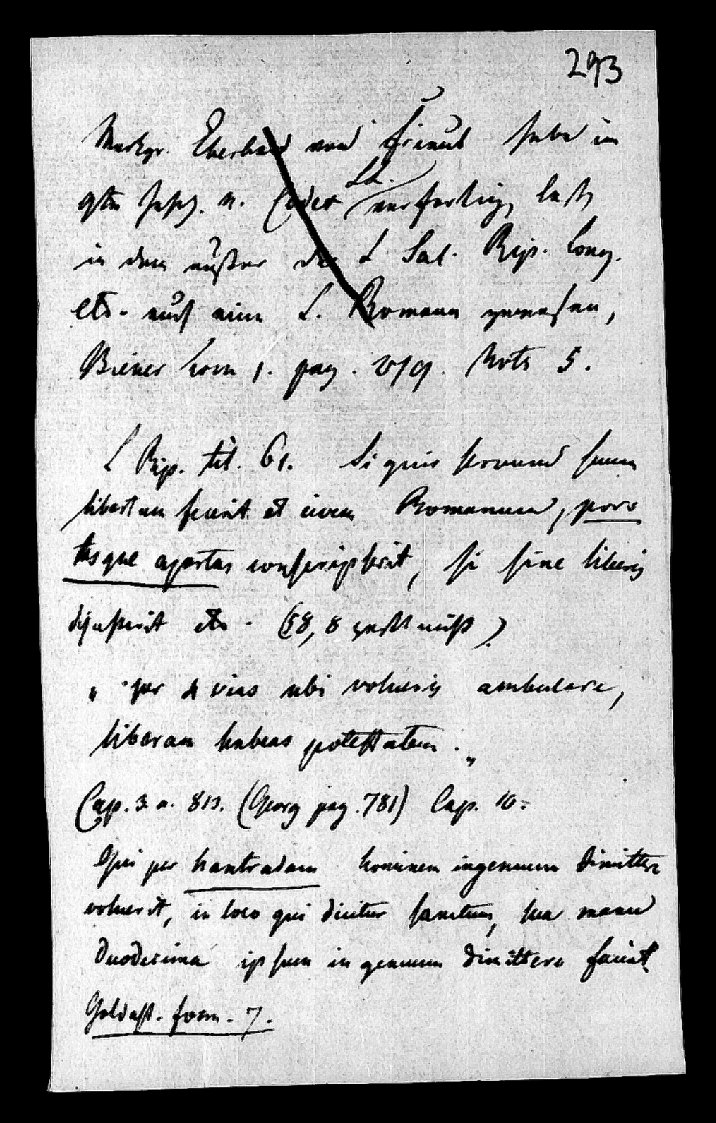 293
Markgr. Eberhard von Friaul habe im
9ten Jahrh. u. Codex LL. verfertigen lassen
in dem außer der L. Sal. Rip. Long.
etc. auch eine L. Romana gewesen,
Biener Com 1. pag. 279. Nota 5.
L Rip. tit. 61. Si quis servum suum
libertum fecerit et civem Romanum, por
tasque apertas conscripserit, si sine liberis
discesserit etc.
" per 4 vias ubi volueris ambulare,
liberam habeas potestatem. "
Cap. 3. a. 813. (Georg pag. 781) Cap. 10:
Qui per hantradam hominem ingenuum dimittere
voluerit, in loco qui dicitur sanctum, sua manu
duodecima ipsum ingenuum dimittere faciat
Goldast. form. 7.